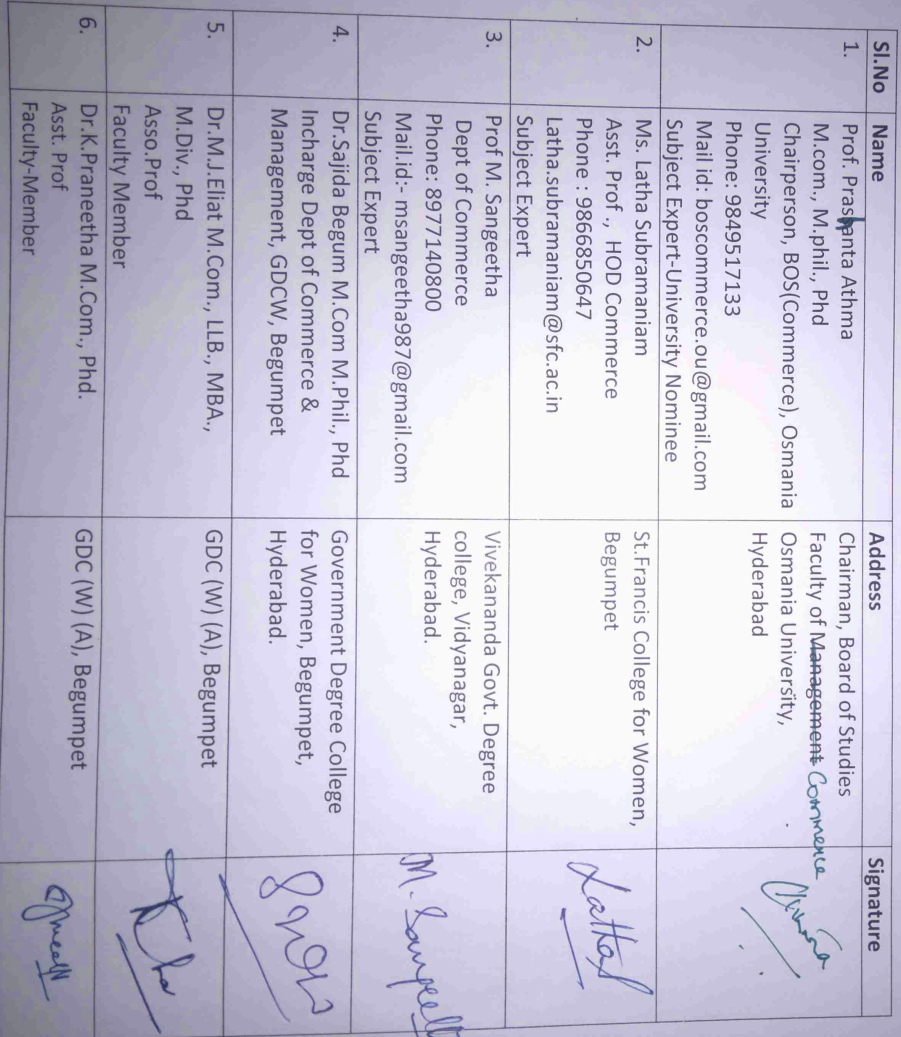 Sl.No Name Address Signature
1. Prof. Prashanta Athma
M.com., M.phil., Phd
Chairperson, BOS(Commerce), Osmania
University
Phone: 9849517133
Mail id: boscommerce.ou@gmail.com
Subject Expert-University Nominee
Chairman, Board of Studies
Faculty of Management Commerce
Osmania University,
Hyderabad
2. Ms. Latha Subramaniam
Asst. Prof ., HOD Commerce
Phone : 9866850647
Latha.subramaniam@sfc.ac.in
Subject Expert
St.Francis College for Women,
Begumpet
3. Prof M. Sangeetha
Dept of Commerce
Phone: 8977140800
Mail.id:- msangeetha987@gmail.com
Subject Expert
Vivekananda Govt. Degree
college, Vidyanagar,
Hyderabad.
M. Sangeeth
4. Dr.Sajida Begum M.Com M.Phil., Phd
Incharge Dept of Commerce &
Management, GDCW, Begumpet
Government Degree College
for Women, Begumpet,
Hyderabad.
5. Dr.M.J.Eliat M.Com., LLB., MBA.,
M.Div., Phd
Asso.Prof
Faculty Member
GDC (W) (A), Begumpet
6. Dr.K.Praneetha M.Com., Phd.
Asst. Prof
Faculty-Member
GDC (W) (A), Begumpet